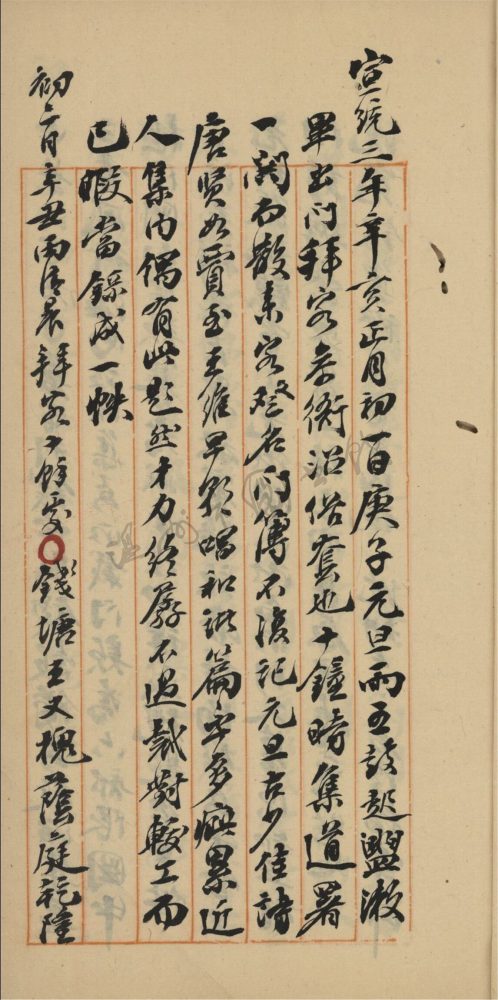 宣統三年辛亥正月初一日庚子元旦雨五鼓起盥漱
畢出門拜客參衙沿俗套也十鐘時集道署
一閧而散來客登名門簿不復記元旦古少佳詩
唐賢如賈至王維早朝唱和諸篇亦多疵累近
人集内偶有此題然才力終孱不過裁對較工而
已暇當錄成一帙
初二日辛丑雨清晨拜客十餘處○錢塘王文槐蔭庭祀隆